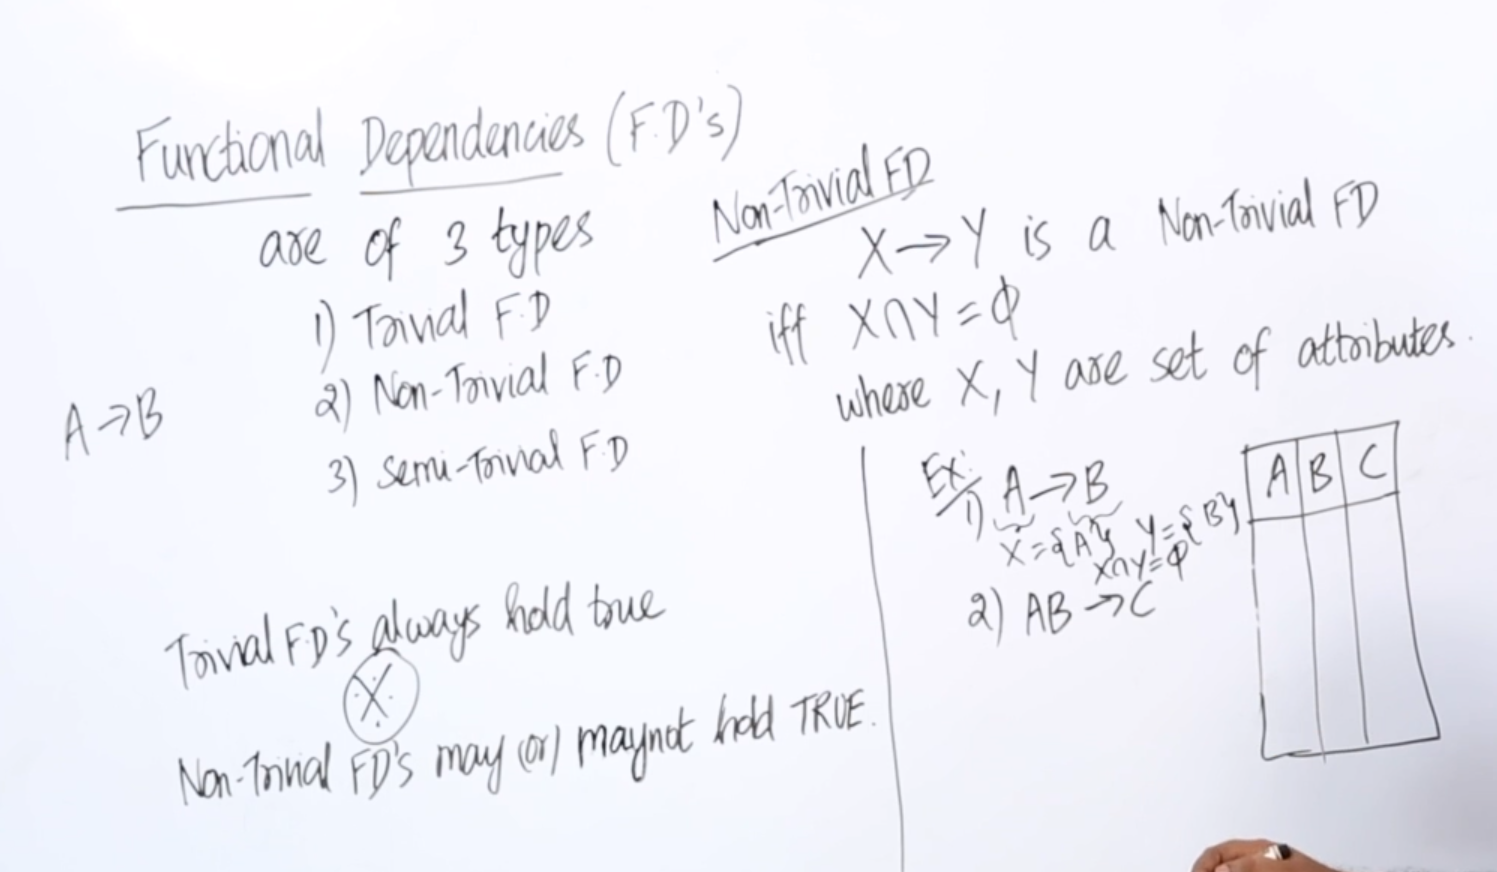 Functional Dependencies (F.D's)
are of 3 types
1) Trivial F.D
2) Non-Trivial F.D
3) Semi-Trivial F.D
A→B
Trivial F.D's always hold true
X
Non-Trivial FD's may (or) maynot hold TRUE.
Non-Trivial FD
X→Y is a Non-Trivial FD
iff X∩Y=ϕ
where X, Y are set of attributes.
Ex:
1) A→B
X={A} Y={B}
X∩Y=ϕ
2) AB→C
A B C